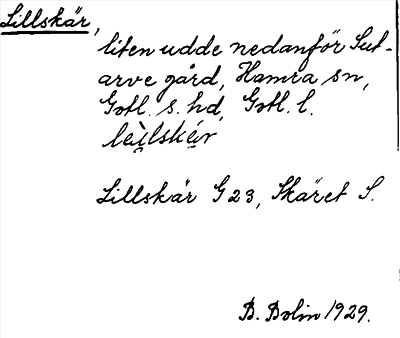 Lillskär,
liten udde nedanför Sut-
arve gård, Hamra sn,
Gotl. s. hd, Gotl. l.
Lillskär G 23, Skäret S.
B. Bolin 1929.